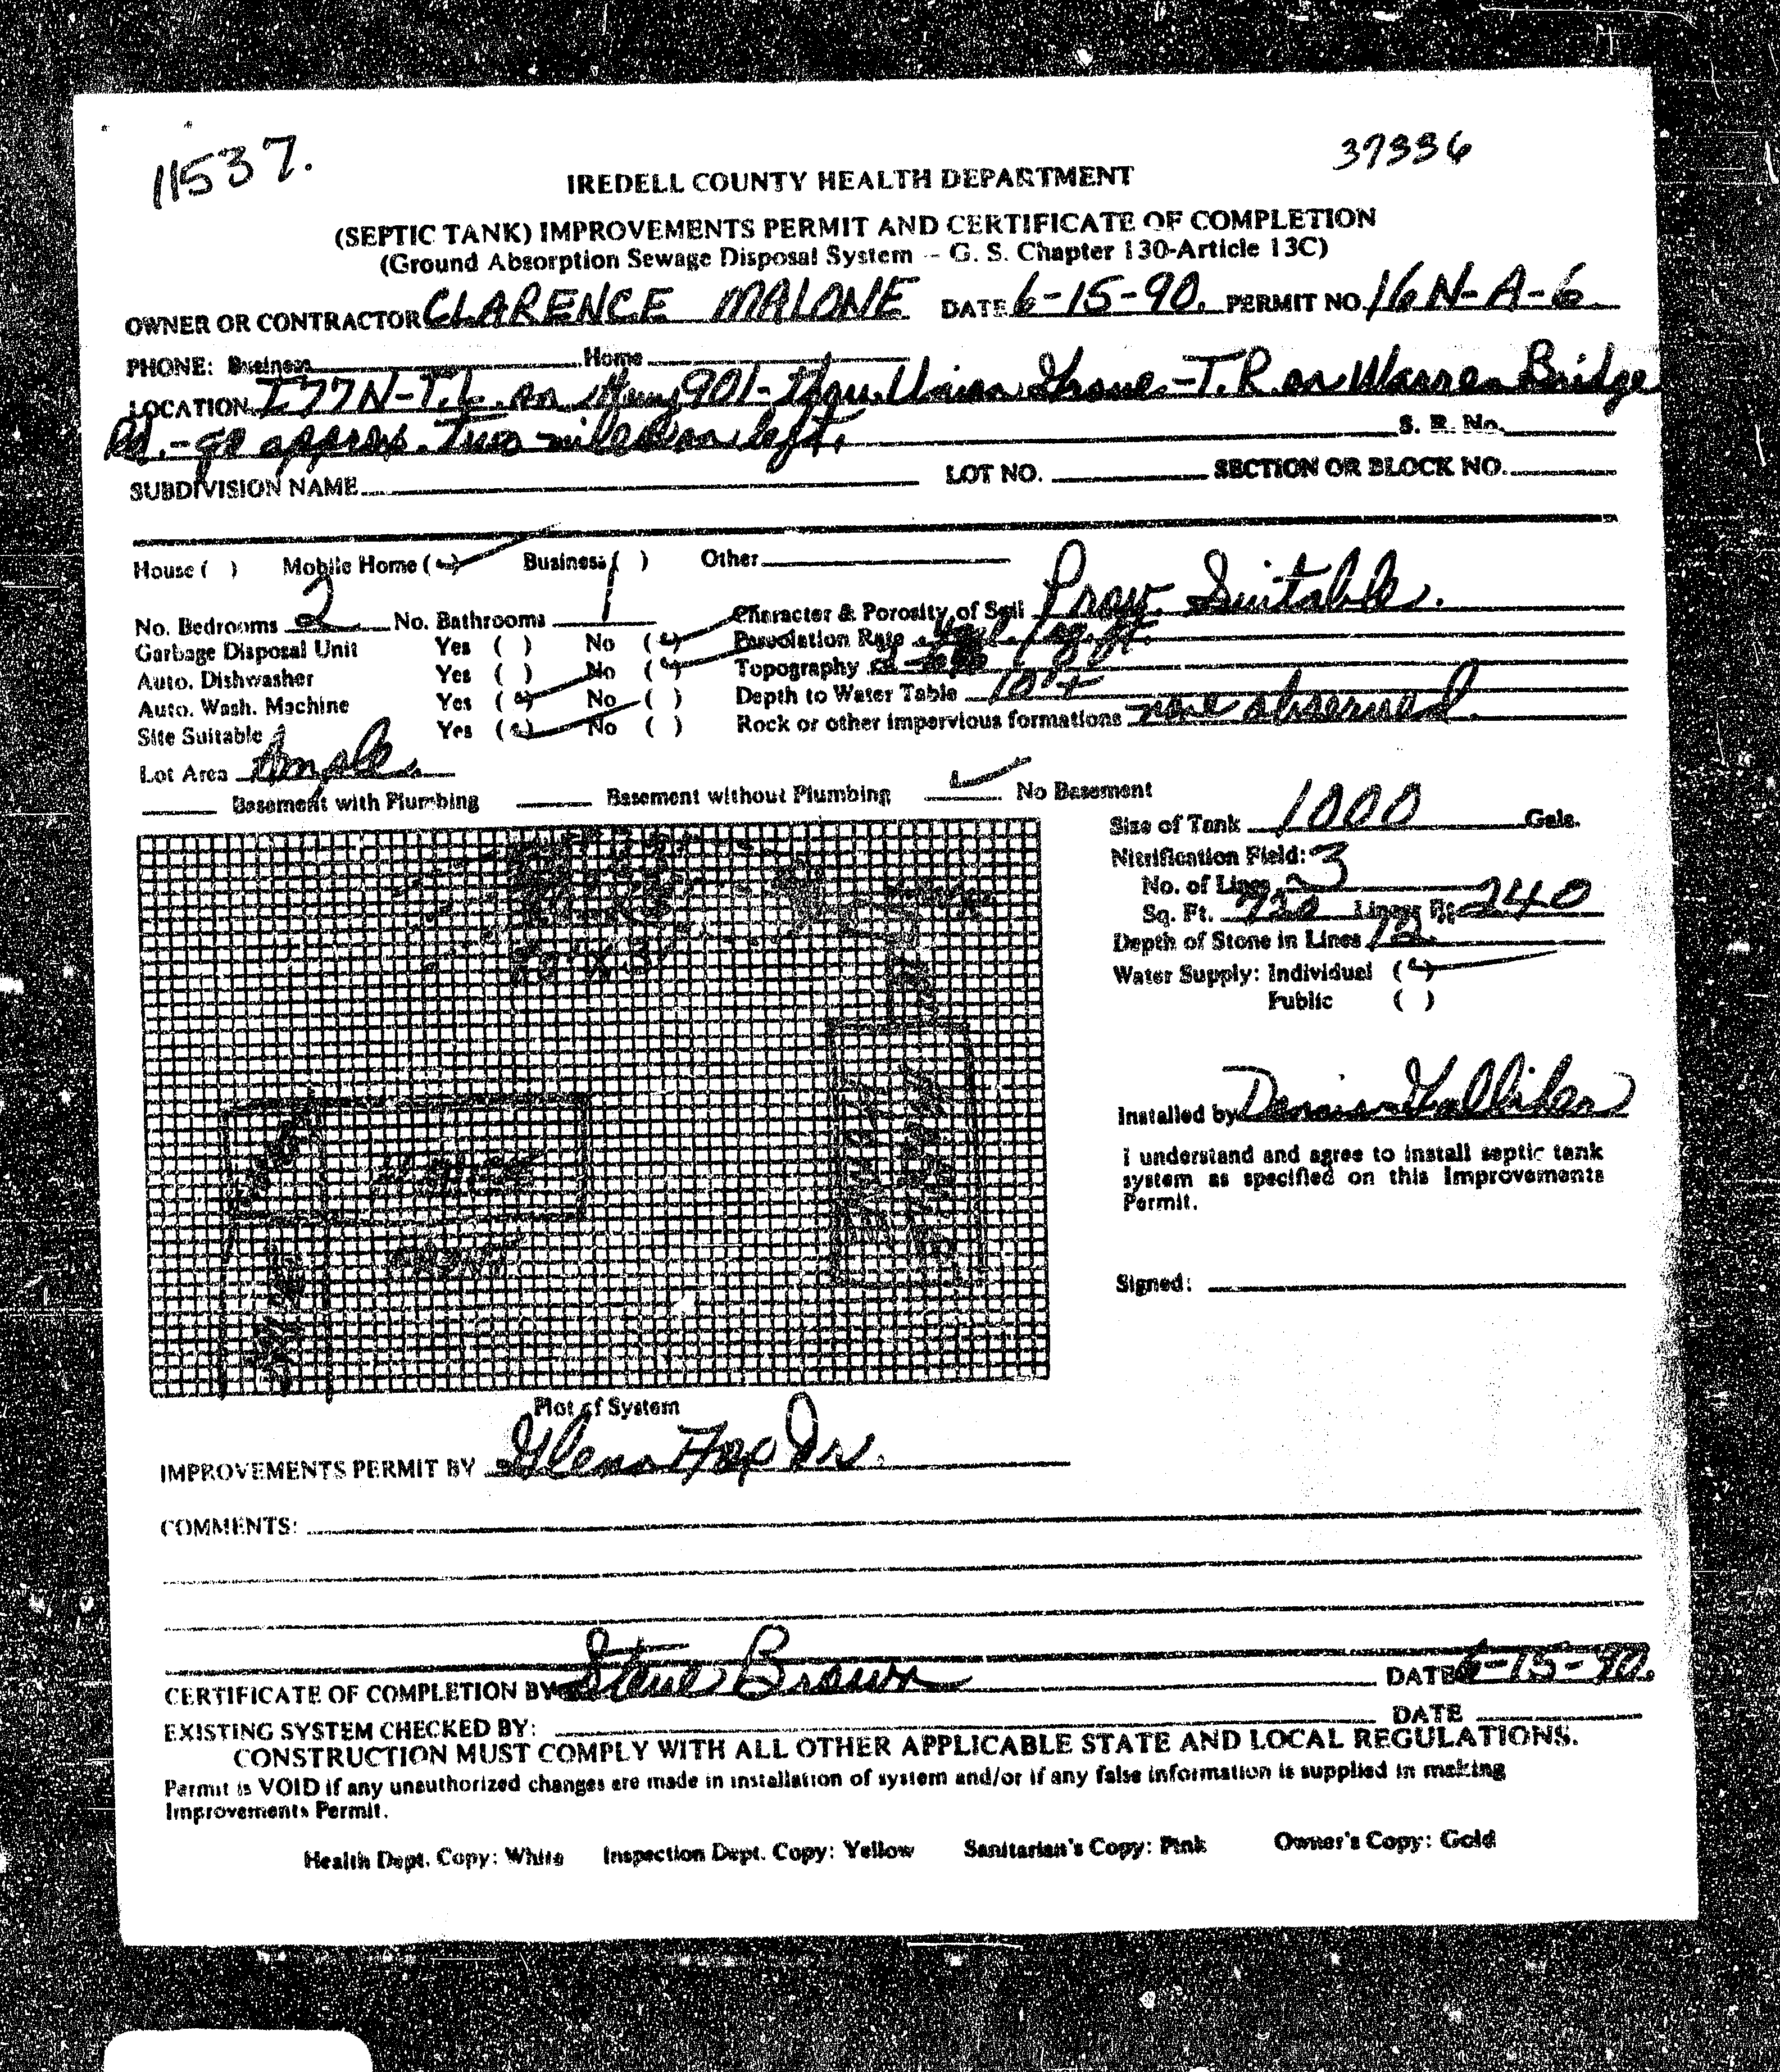 11537.
37336
IREDELL COUNTY HEALTH DEPARTMENT
(SEPTIC TANK) IMPROVEMENTS PERMIT AND CERTIFICATE OF COMPLETION
(Ground Absorption Sewage Disposal System -- G. S. Chapter 130-Article 13C)
OWNER OR CONTRACTOR CLARENCE MALONE DATE 6-15-90. PERMIT NO. 16N-A-6
PHONE: Business Home
LOCATION I77N-T.L. on Hwy 901- thru Union Grove-T.R on Warren Bridge
Rd.-go approx. two miles on left. S. R. No.
SUBDIVISION NAME LOT NO. SECTION OR BLOCK NO.
House ( ) Mobile Home (✓) Business ( ) Other
No. Bedrooms 2 No. Bathrooms 1 Character & Porosity of Soil Prov. Suitable.
Garbage Disposal Unit Yes ( ) No (✓) Percolation Rate
Auto. Dishwasher Yes ( ) No (✓) Topography
Auto. Wash. Machine Yes (✓) No ( ) Depth to Water Table 10'+
Site Suitable Yes (✓) No ( ) Rock or other impervious formations none observed.
Lot Area Ample.
Basement with Plumbing Basement without Plumbing ✓ No Basement
Size of Tank 1000 Gals.
Nitrification Field:
No. of Lines 3
Sq. Ft. 720 Linear Ft. 240
Depth of Stone in Lines 12
Water Supply: Individual (✓)
Public ( )
Installed by Dennis
I understand and agree to install septic tank
system as specified on this Improvements
Permit.
Signed:
Plot of System
IMPROVEMENTS PERMIT BY Glenn Jr.
COMMENTS:
CERTIFICATE OF COMPLETION BY Steve Brown DATE 6-15-90.
EXISTING SYSTEM CHECKED BY: DATE
CONSTRUCTION MUST COMPLY WITH ALL OTHER APPLICABLE STATE AND LOCAL REGULATIONS.
Permit is VOID if any unauthorized changes are made in installation of system and/or if any false information is supplied in making
Improvements Permit.
Health Dept. Copy: White Inspection Dept. Copy: Yellow Sanitarian's Copy: Pink Owner's Copy: Gold